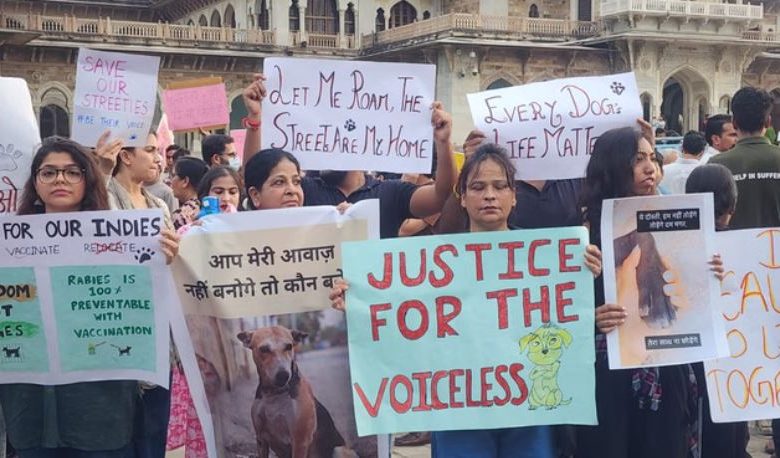 SAVE
OUR
STREETIES
#BE THEIR VOICE
LET ME ROAM, THE
STREETS ARE MY HOME
EVERY DOG
LIFE MATTE
FOR OUR INDIES
VACCINATE RELOCATE
DOM
T
GES
RABIES IS
100%
PREVENTABLE
WITH
VACCINATION
आप मेरी आवाज़
नहीं बनोगे तो कौन ब
JUSTICE
FOR THE
VOICELESS
ये दोस्ती, हम नहीं
तोड़ेंगे
तोड़ेंगे दम मगर,
तेरा साथ ना छोड़ेंगे
HELP
IN SUFFER
I
TOGE